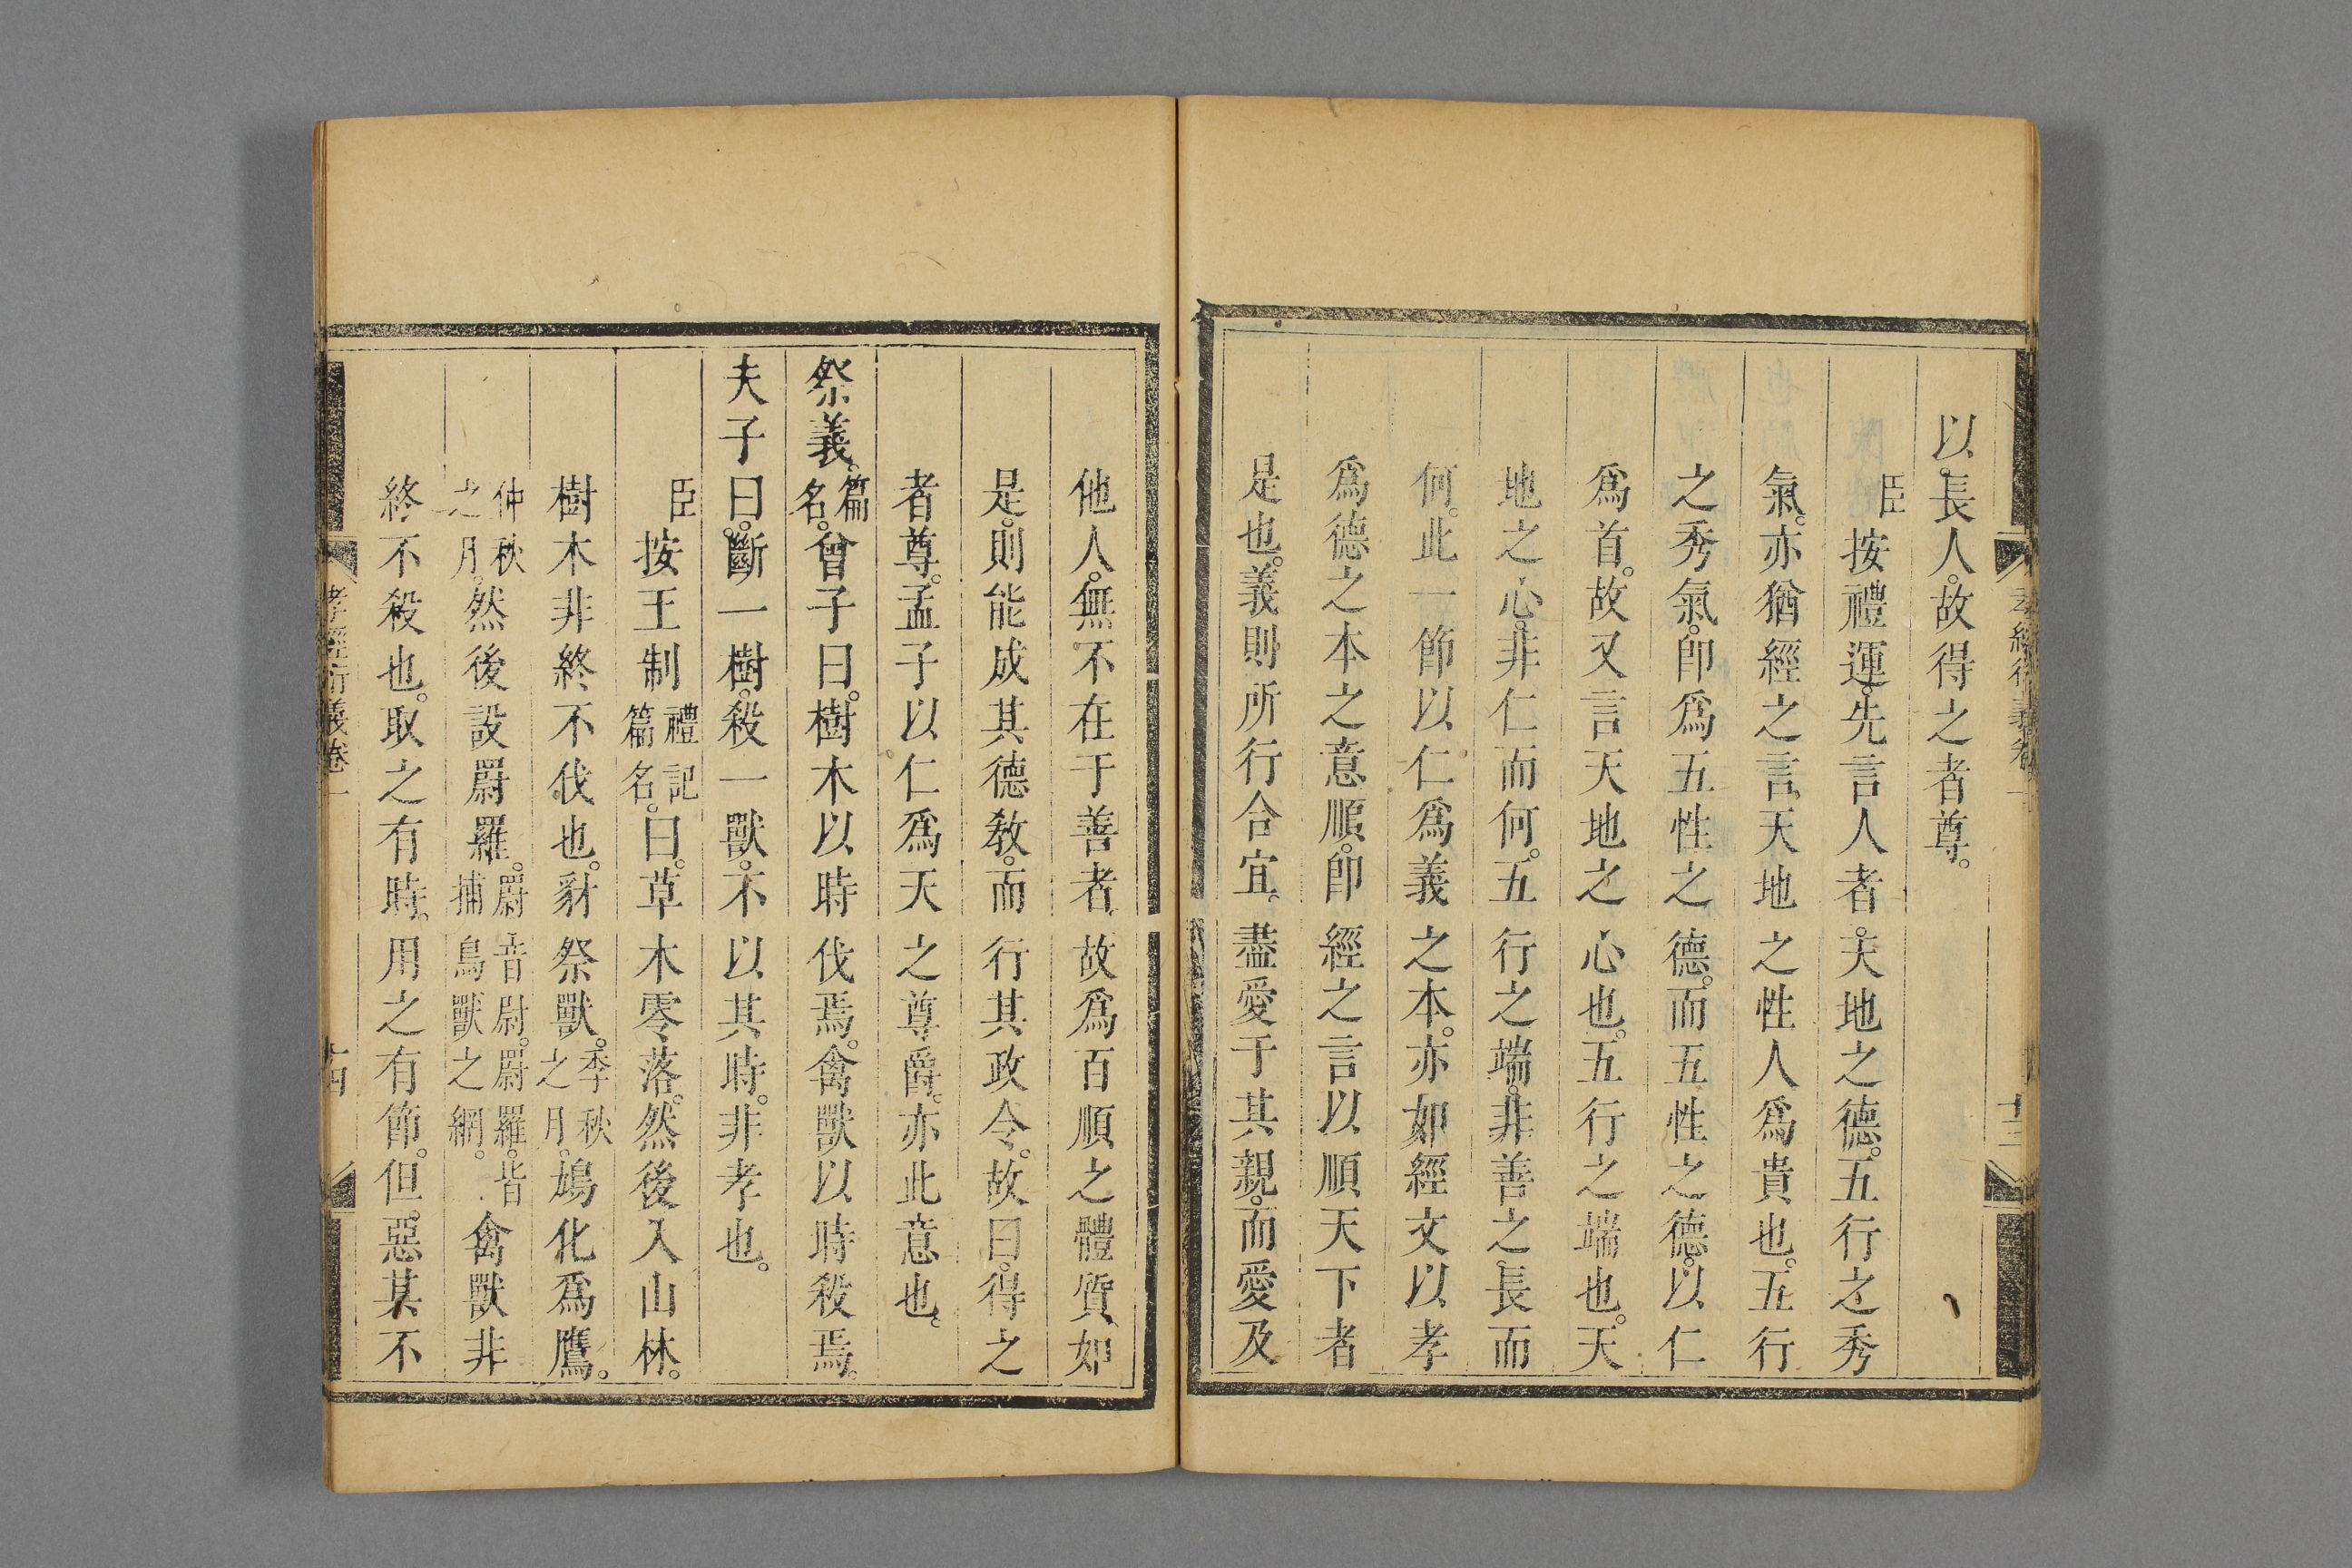 以長人。故得之者尊。
臣按禮運。先言人者。天地之德。五行之秀
氣。亦猶經之言天地之性人爲貴也。五行
之秀氣。卽爲五性之德。而五性之德。以仁
爲首。故又言天地之心也。五行之端也。天
地之心。非仁而何。五行之端。非善之長而
何。此一節以仁爲義之本。亦如經文以孝
爲德之本之意順。卽經之言以順天下者
是也。義則所行合宜。盡愛于其親。而愛及
他人。無不在于善者。故爲百順之體質。如
是。則能成其德敎。而行其政令。故曰。得之
者尊。孟子以仁爲天之尊爵。亦此意也。
祭義。篇名。曾子曰。樹木以時伐焉。禽獸以時殺焉。
夫子曰。斷一樹。殺一獸。不以其時。非孝也。
臣按王制禮記篇名。曰。草木零落。然後入山林。
樹木非終不伐也。豺祭獸。季秋之月。鳩化爲鷹。
仲秋之月。然後設罻羅。罻音尉。罻羅。皆捕鳥獸之網。禽獸非
終不殺也。取之有時。用之有節。但惡其不
孝經衍義卷一